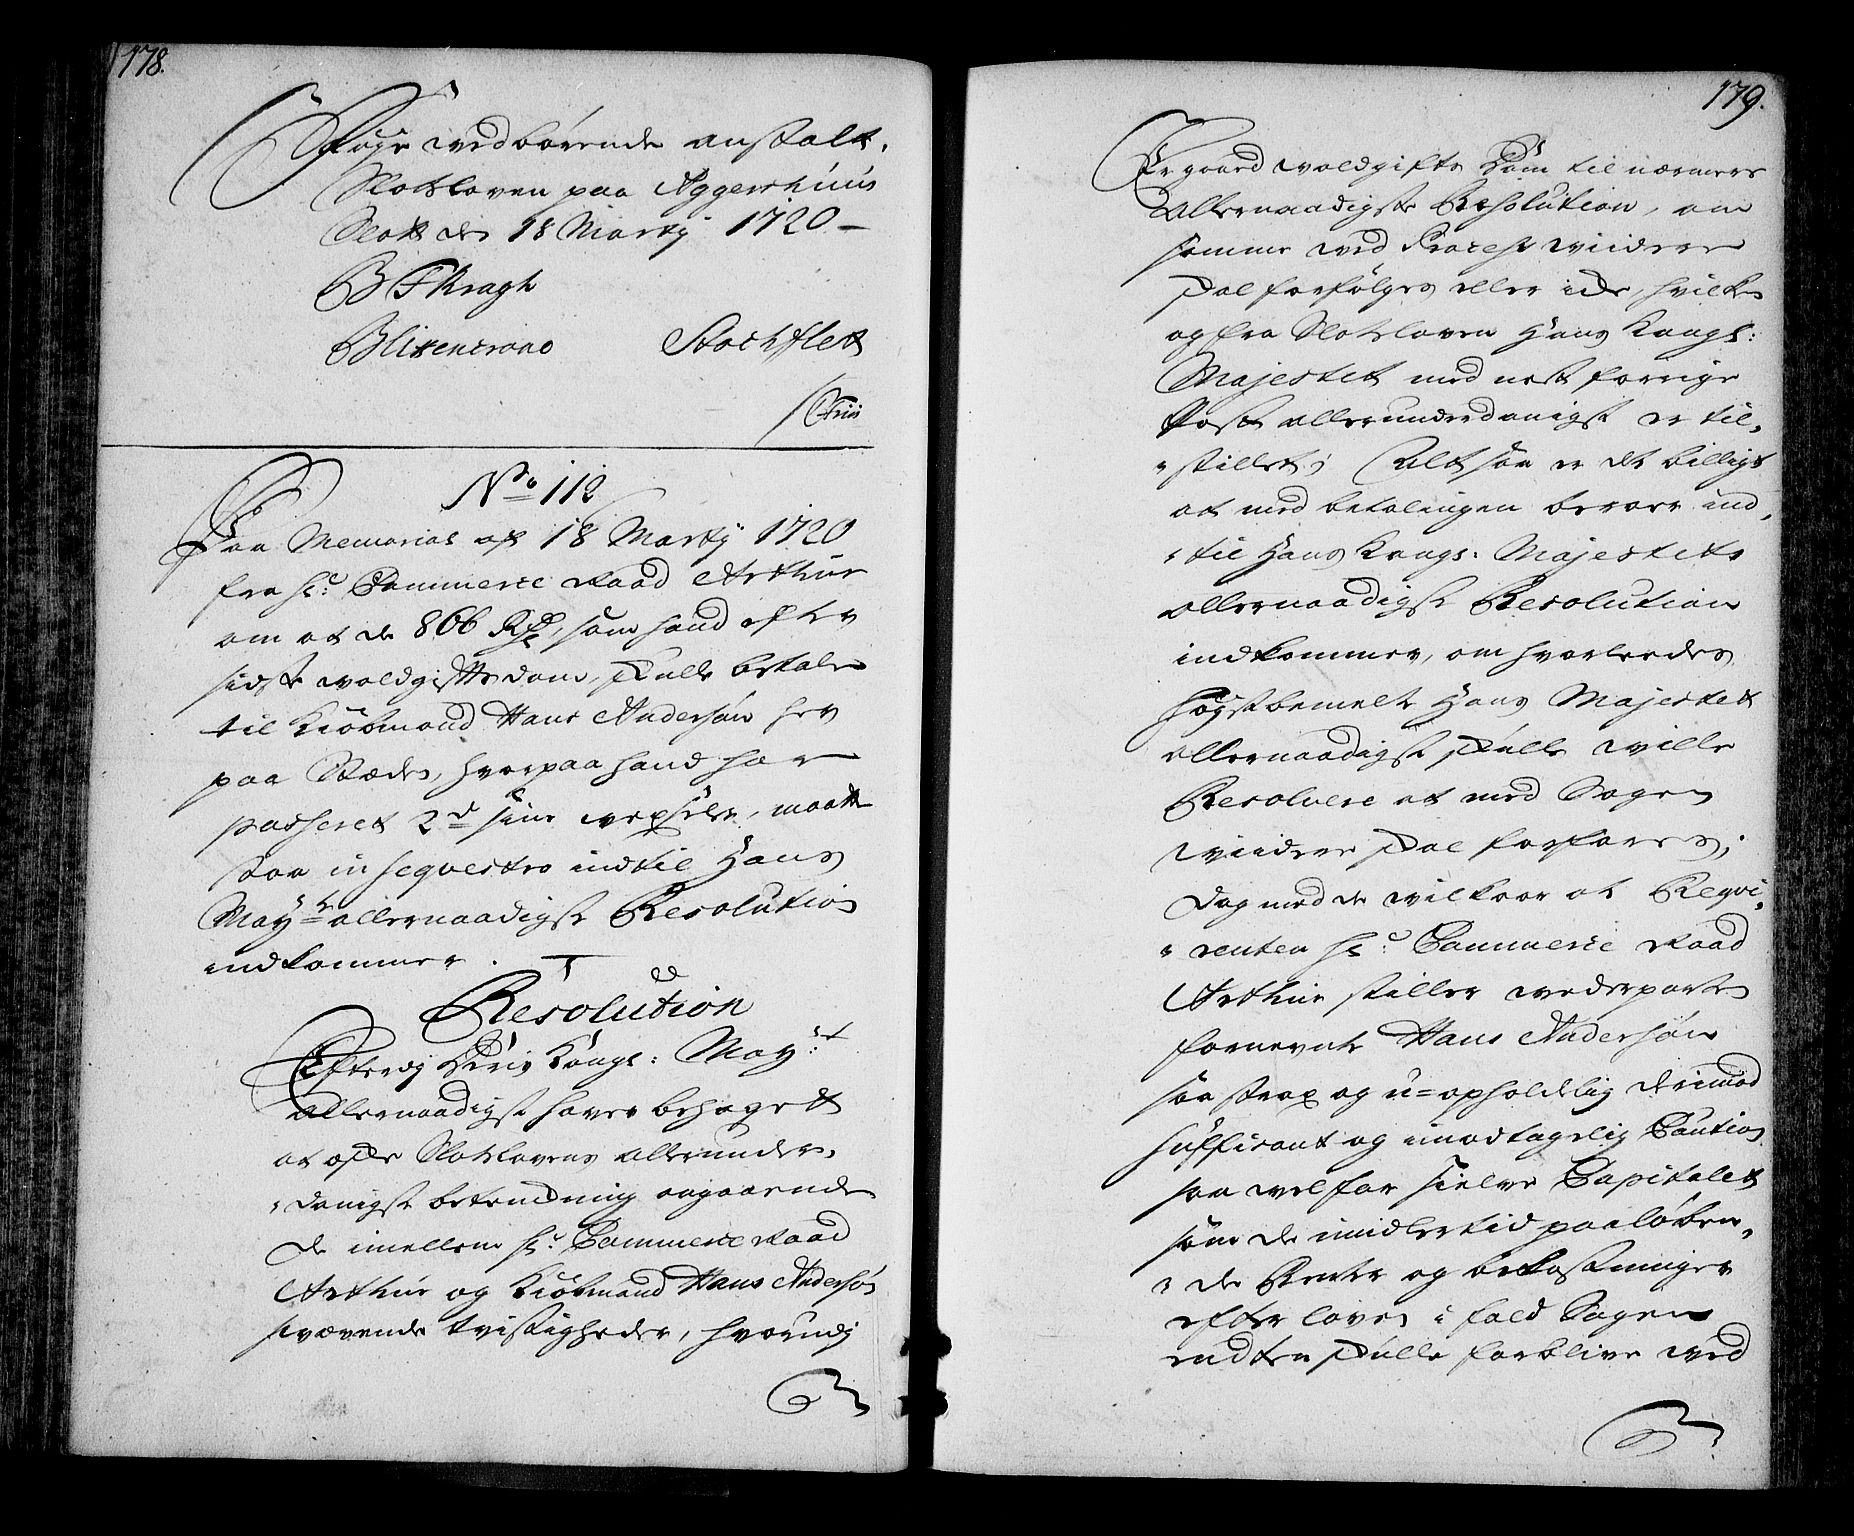 178.
føye wedbørende anstalt.
Slotsloven paa Aggershuus
Slott den 18 Martij 1720 –
B F Kragh
Blixencrone Stochflett
No. 112
Paa Memorial af 18 Martij 1720
fra Hr. Commerce Raad Arthur
om at de 806 Rdr, som hand efter
sidste woldgiftsdom, skulle betale
til Kiøbmand Hans Andersøn her
paa Stædet, hvorpaa hand har
passeret 2de sine wexseler, maatte
staa in seqvestro indtil Hans
Mayts allernaadigste Resolution
indkommer.
Resolution
Eftersom Deris Kongl: Mayt:
allernaadigst haver behaget
at æske Slotslovens allerunder-
danigste betenckning angaaende
de imellem Hr. Commerce Raad
Arthur og Kiøbmand Hans Andersøn
swævende tvistigheder, hvorudj
179.
Er giord woldgifts Dom til nærmere
allernaadigste Resolution, om
samme wed Process wiidere
skal forfølges eller icke, hvilken
og fra Slotsloven Hans Kongl:
Majestet med nest forrige
Post allerunderdanigst er til-
stillet; Altsaa er det billigt
at med betalingen beroer ind-
til Hans Kongl: Majestets
allernaadigste Resolution
indkommer, om hvorleedes
høystbemelte Hans Majestet
allernaadigst skulle wille
Resolvere at med Sagen
wiidere skal forfares;
Dog med de wilkaar at Reqvi-
renten Hr. Commerce Raad
Arthur stiller wederparten
fornevnte Hans Andersøn
saa strax og u-opholdelig derimod
suffisant og imodtagelig Caution
saa wel for sielve Capitalet
som de imidlertid paaløben-
de Renter og bekostninger
efter loven i fald Sagen
endten skulle forblive wed